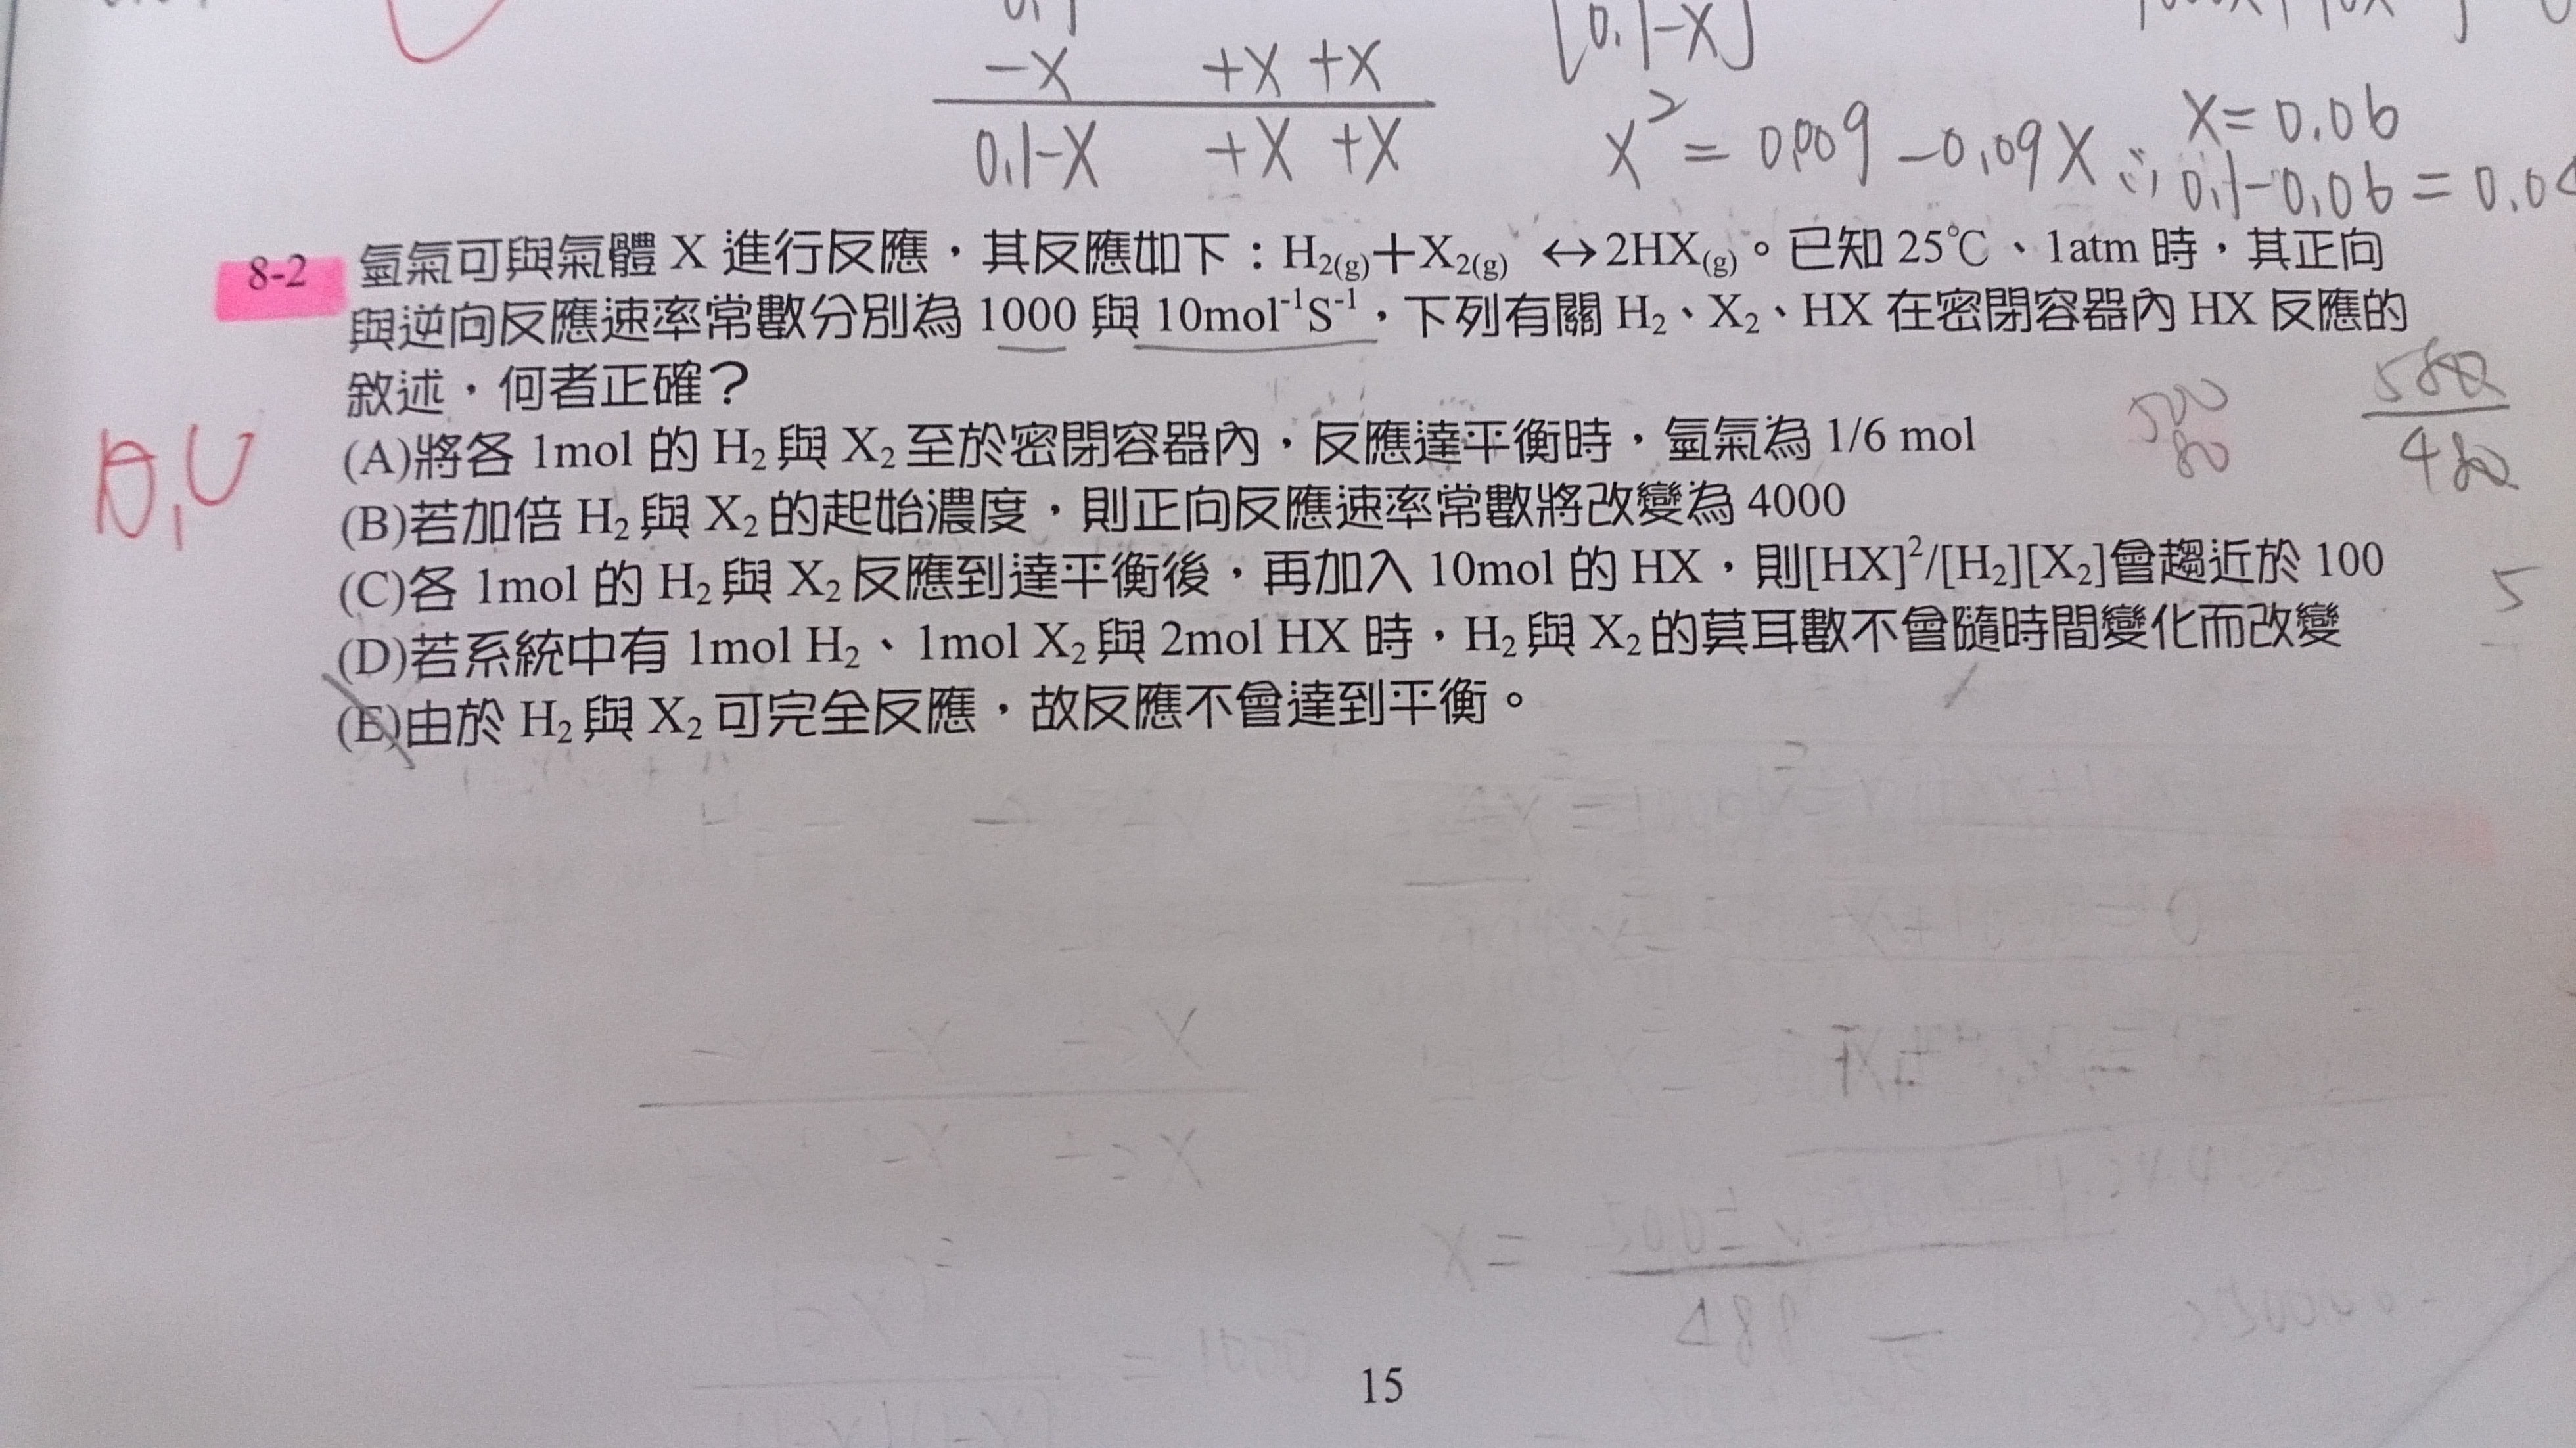 -X +X +X
[0.1-X]
0.1-X +X +X
X² = 0.009 -0.09X
X=0.06
0.1-0.06=0.0
8-2 氫氣可與氣體 X 進行反應，其反應如下：H₂(g)＋X₂(g) ↔2HX(g)。已知 25℃、1atm 時，其正向
與逆向反應速率常數分別為 1000 與 10mol⁻¹S⁻¹，下列有關 H₂、X₂、HX 在密閉容器內 HX 反應的
敘述，何者正確？
(A)將各 1mol 的 H₂ 與 X₂ 至於密閉容器內，反應達平衡時，氫氣為 1/6 mol
(B)若加倍 H₂ 與 X₂ 的起始濃度，則正向反應速率常數將改變為 4000
(C)各 1mol 的 H₂ 與 X₂ 反應到達平衡後，再加入 10mol 的 HX，則[HX]²/[H₂][X₂]會趨近於 100
(D)若系統中有 1mol H₂、1mol X₂ 與 2mol HX 時，H₂ 與 X₂ 的莫耳數不會隨時間變化而改變
(E)由於 H₂ 與 X₂ 可完全反應，故反應不會達到平衡。
500
80
5
15